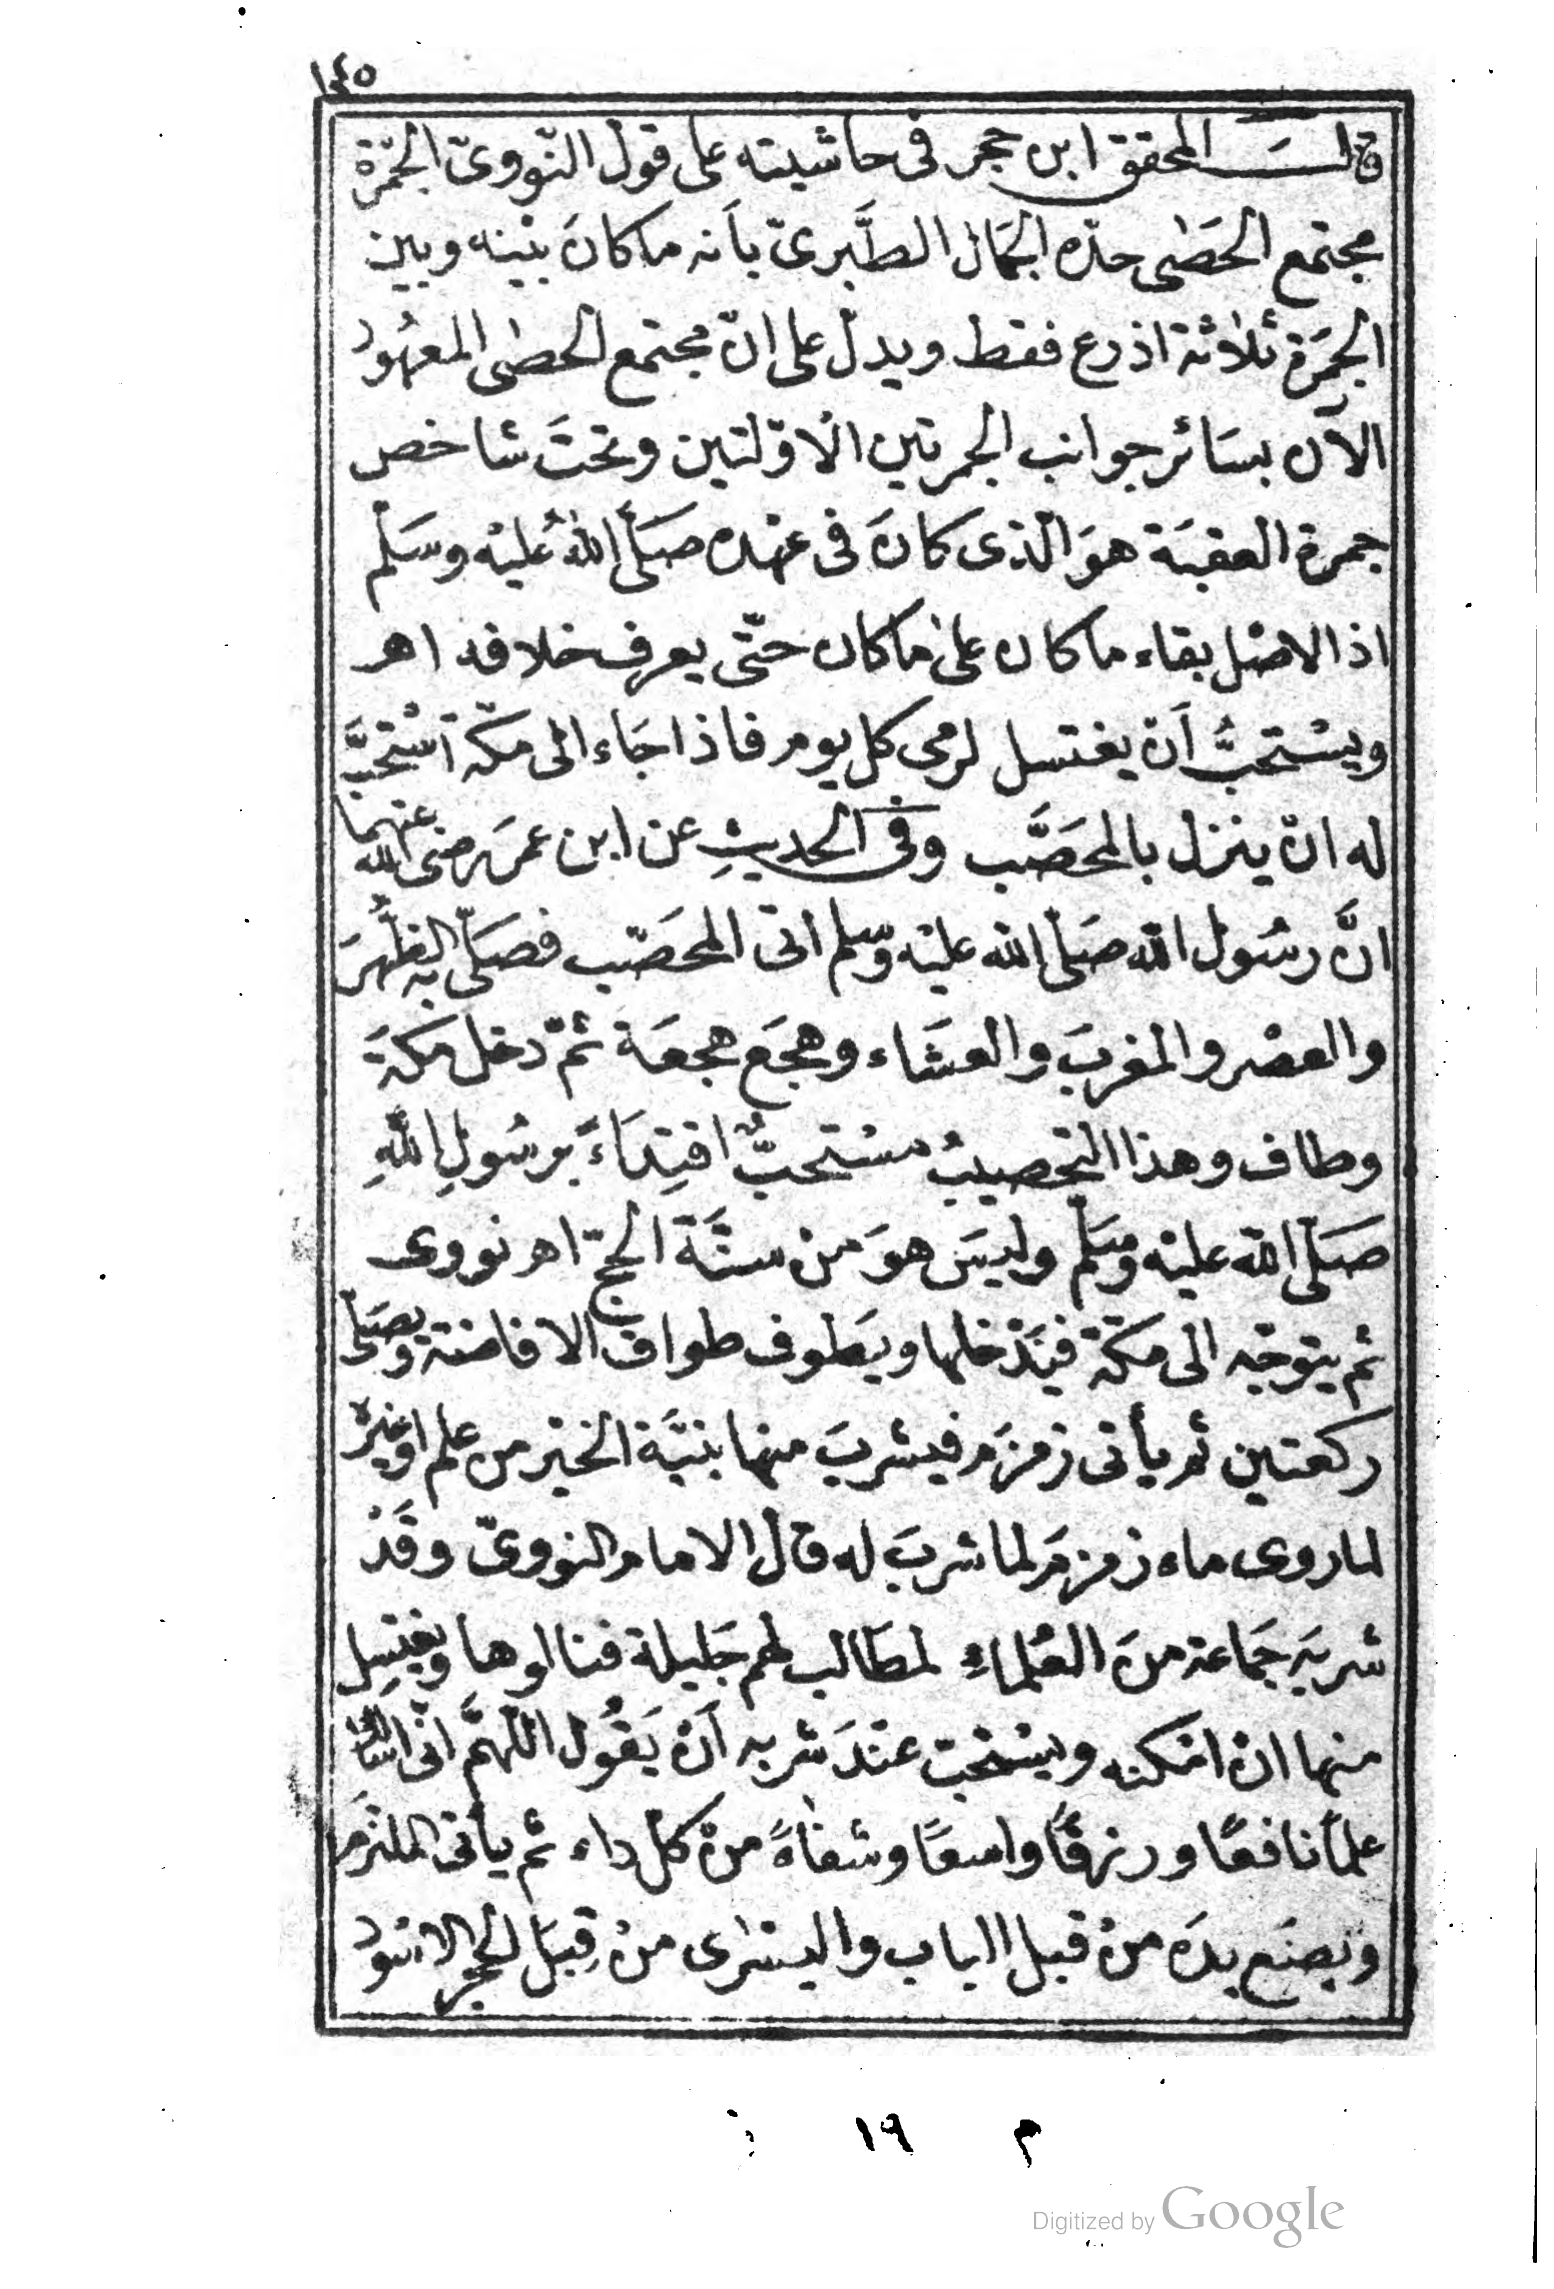 ١٤٥
قال المحقق ابن حجر فى حاشيته على قول النّووىّ الجمْرة
مجتمع الحَصٰى حدّه الجمَال الطَّبرىّ بأنه ما كانَ بيْنه وبين
الجمَرة ثلاثة اذرع فقط ويدلّ على انّ مجتمع الحصٰى المعهُود
الآن بسَائر جوانب الجمرتين الاوّلتين وتحتَ شاخص
جمرة العقبَة هوَ الّذى كانَ فى عهْده صَلَّى اللهُ عليْه وسَلّم
اذ الاصْل بقاء ما كان علىٰ ما كان حتّى يعرف خلافه اهر
ويسْتحبُّ اَنْ يغتسل لرمى كل يوم فاذا جَاء الى مكّة اسْتحَبَّ
له انّ ينزل بالمحَصَّب وفى الحديثِ عن ابن عمَر رضى الله عنهما
انَّ رسُول الله صَلّى الله عليْه وسّلم اتى المحصّب فصَلّى به الظُّهرَ
والعصْر والمغربَ والعشَاء وهجَع هجعَة ثمّ دخل مكةَ
وطاف وهذا التحصيبُ مسْتحبٌّ اقتِدَاءً برسُولِ اللّٰهِ
صَلّى الله عليْه وسَلّم وليسَ هوَ منْ سنَّة الحجّ اهر نووى
ثم يتوجّه الى مكّة فيَدْخلها ويَطوف طواف الافاضة ويصَلّى
ركعتين ثم يأتى زمزمَ فيشربَ منها بنيَّة الخيْر من علم اوغيْره
لما روى ماء زمزمَ لما شربَ له قال الامام النووىّ وقَدْ
شربَه جَماعة منَ العُلماءِ لمطَالب لهم جَليلة فنالوها ويغتسِل
منها انْ امْكنه ويسْتحبّ عنْدَ شربه اَنْ يَقُول اللّهمَّ انّى اسْألك
علماً نافعًا ورزقًا واسعًا وشفاءً منْ كلّ داء ثم يأتى الملتزمَ
ويصنَع يدَه منْ قبل الباب واليسْرٰى منْ قِبَل الحجر الاسْود
م ١٩
Digitized by Google